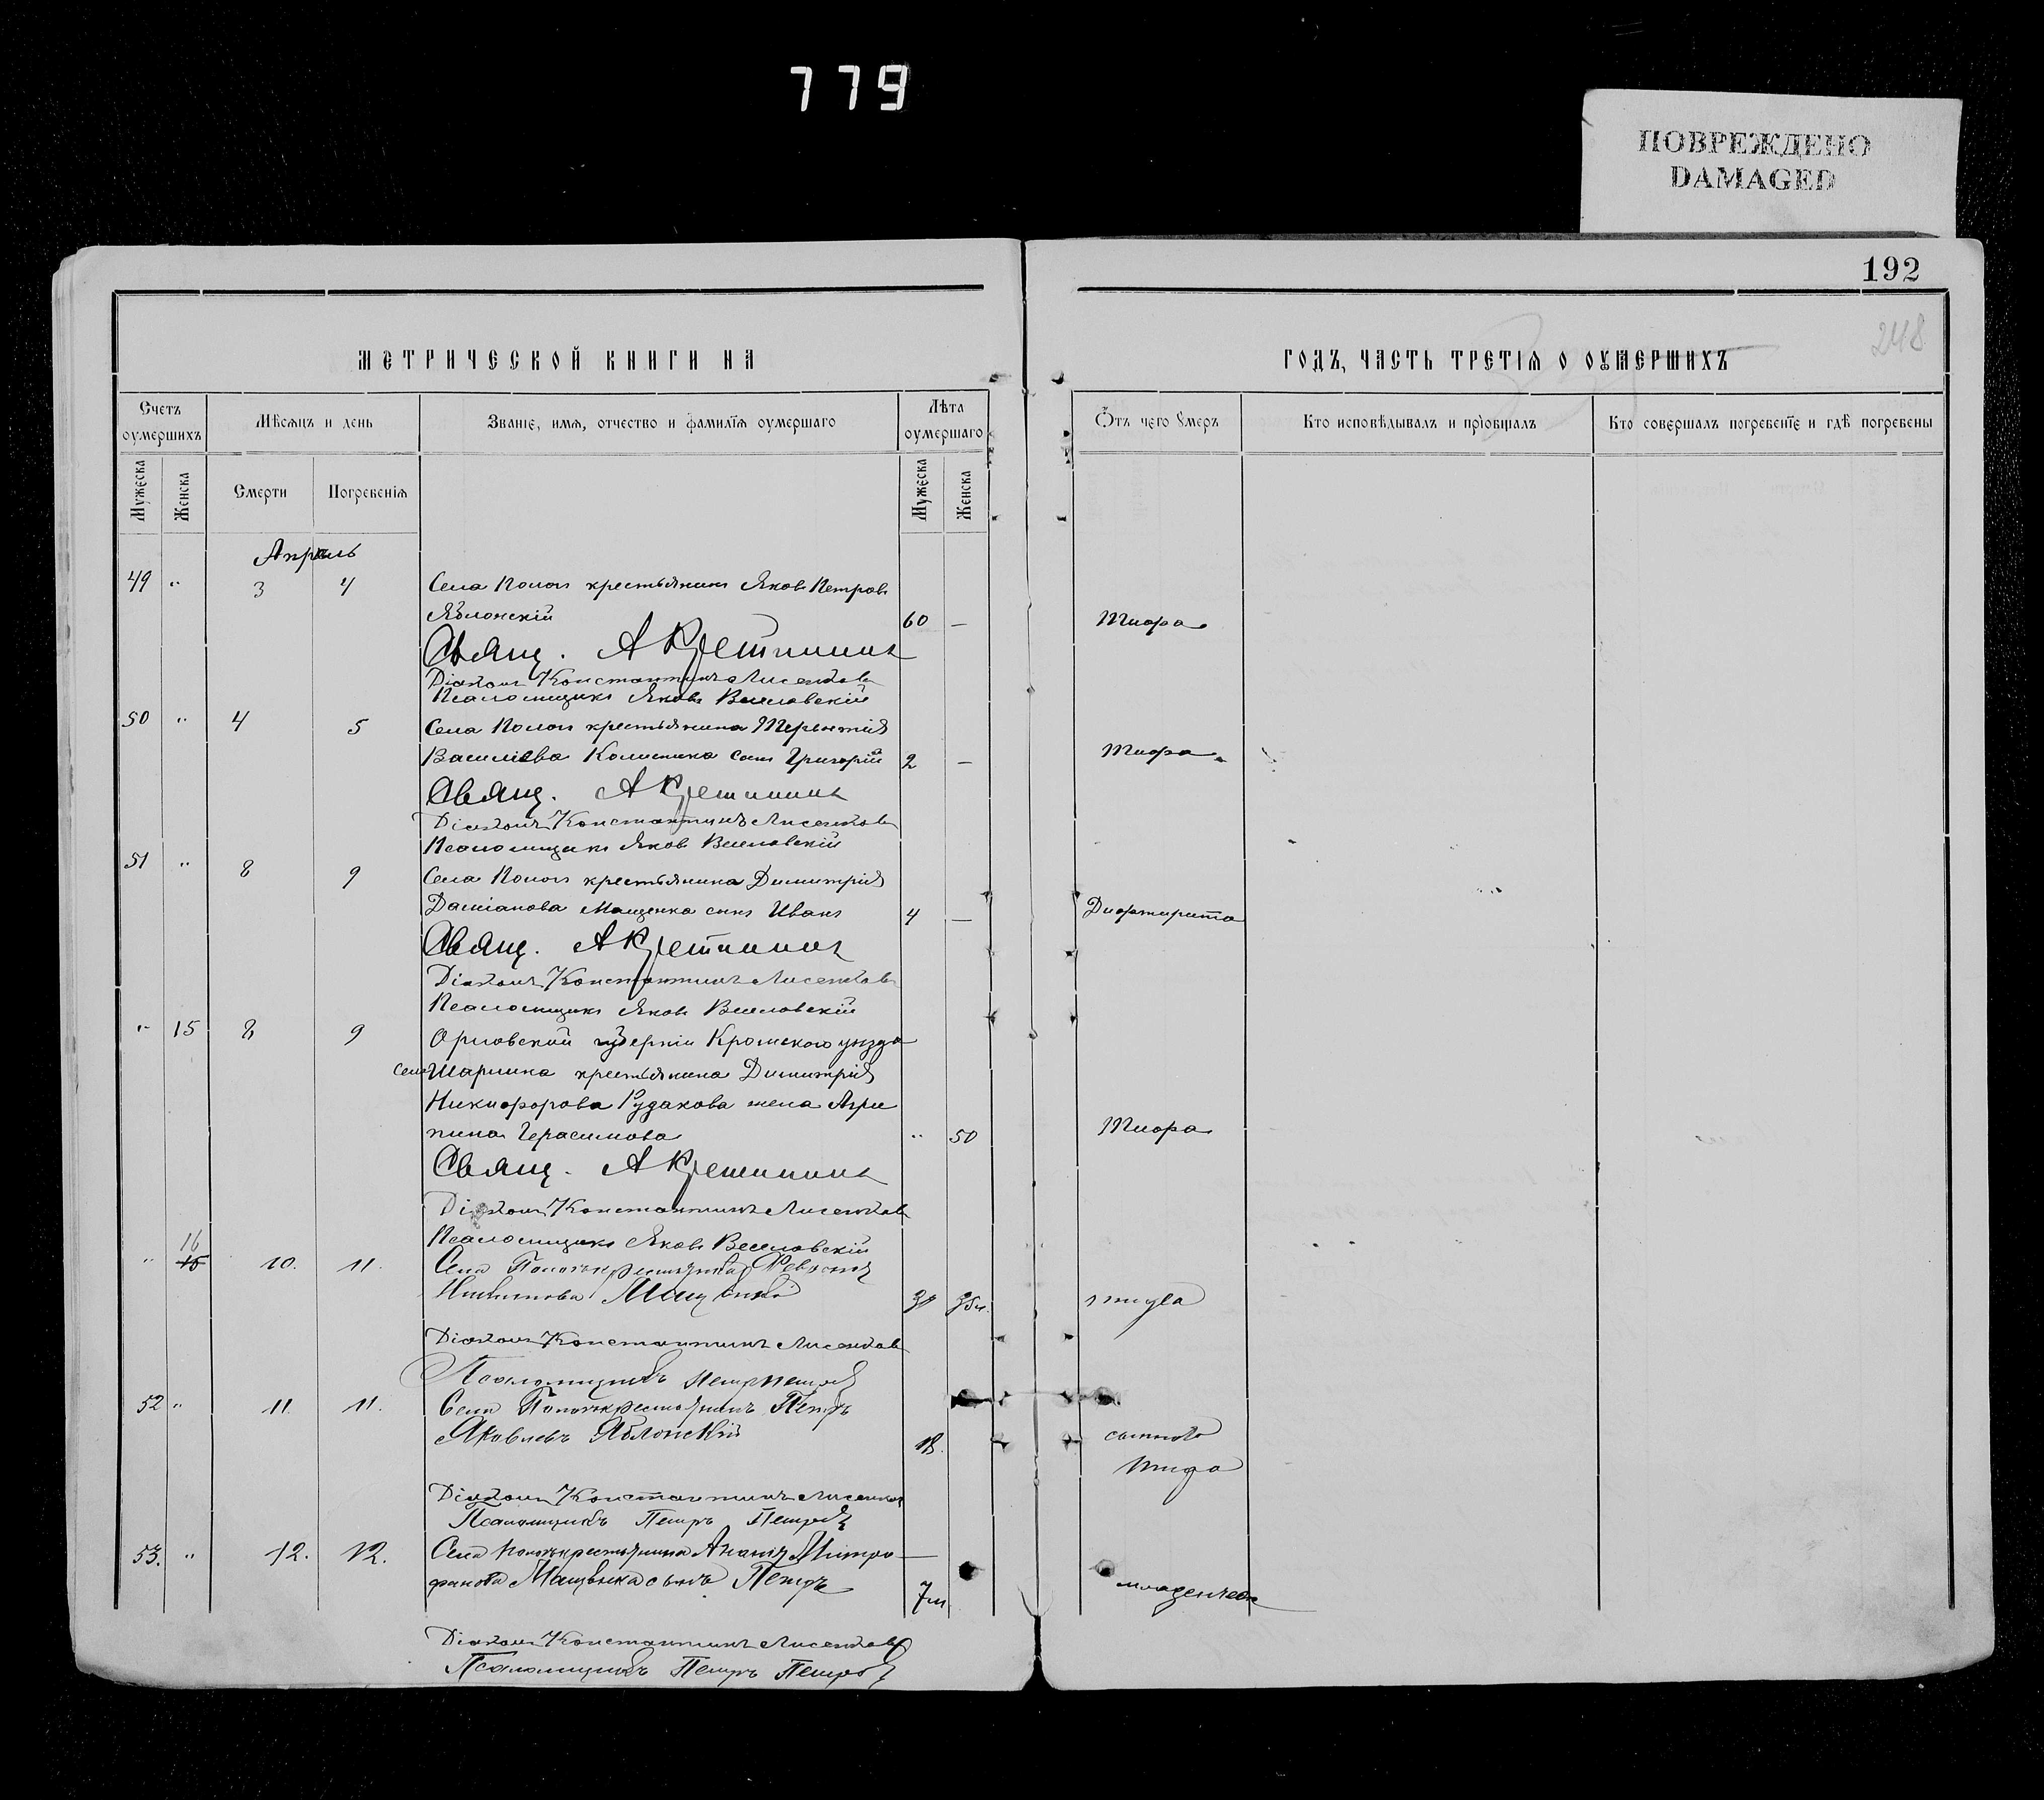 779
ПОВРЕЖДЕНО
DAMAGED
192
248
МЕТРИЧЕСКОЙ КНИГИ НА
ГОДЪ, ЧАСТЬ ТРЕТІѦ О ОУМЕРШИХЪ
Счетъ оумершихъ
Мѣсѧцъ и день
Званіе, имѧ, отчество и фамиліѧ оумершаго
Лѣта оумершаго
Ѿтъ чего Умеръ
Кто исповѣдывалъ и пріобщалъ
Кто совершалъ погребеніе и гдѣ погребены
Мужеска
Женска
Смерти
Погребеніѧ
Мужеска
Женска
Апрель
49 " 3 4 Села Пологъ крестьянинъ Яковъ Петровъ
Яблонскій 60 — Тифа
Свящ. А Крешининъ
Діаконъ Константинъ Лисенковъ
Псаломщикъ Яковъ Веселовскій
50 " 4 5 Села Пологъ крестьянина Терентія
Василіева сынъ Григорій 2 — Тифа
Свящ. А Крешининъ
Діаконъ Константинъ Лисенковъ
Псаломщикъ Яковъ Веселовскій
51 " 8 9 Села Пологъ крестьянина Димитрія
Даміанова Мащенка сынъ Иванъ 4 — Дифтерита
Свящ. А Крешининъ
Діаконъ Константинъ Лисенковъ
Псаломщикъ Яковъ Веселовскій
" 15 8 9 Орловской губерніи Кромского уезда
села крестьянина Димитрія
Никифорова Рудакова жена Агри
пина Герасимова " 50 Тифа
Свящ. А Крешининъ
Діаконъ Константинъ Лисенковъ
Псаломщикъ Яковъ Веселовскій
16
" 15 10. 11. Села Пологъ
Діаконъ Константинъ Лисенковъ
Псаломщикъ Петръ Петровъ
52 " 11. 11. Села Пологъ крестьянинъ Петръ
Яковлевъ Яблонскій 18. сыпного
тифа
Діаконъ Константинъ Лисенковъ
Псаломщикъ Петръ Петровъ
53. " 12. 12. Села Пологъ крестьянина Ананія Митро
фанова Мащенка сынъ Петръ 7м младенческ
Діаконъ Константинъ Лисенковъ
Псаломщикъ Петръ Петровъ